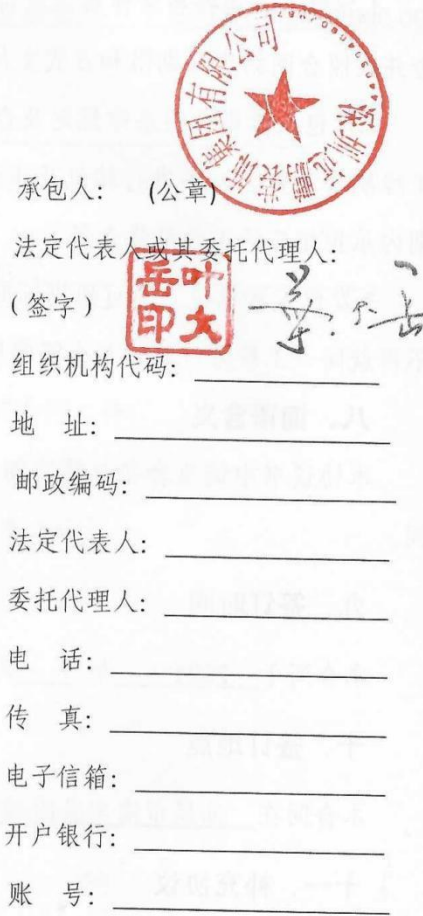 深圳远鹏装饰集团有限公司
承包人: (公章)
法定代表人或其委托代理人:
(签字)
叶大岳印
组织机构代码:
地 址:
邮政编码:
法定代表人:
委托代理人:
电 话:
传 真:
电子信箱:
开户银行:
账 号:
八、
九、签订时间
十、签订地点
十一、补充协议